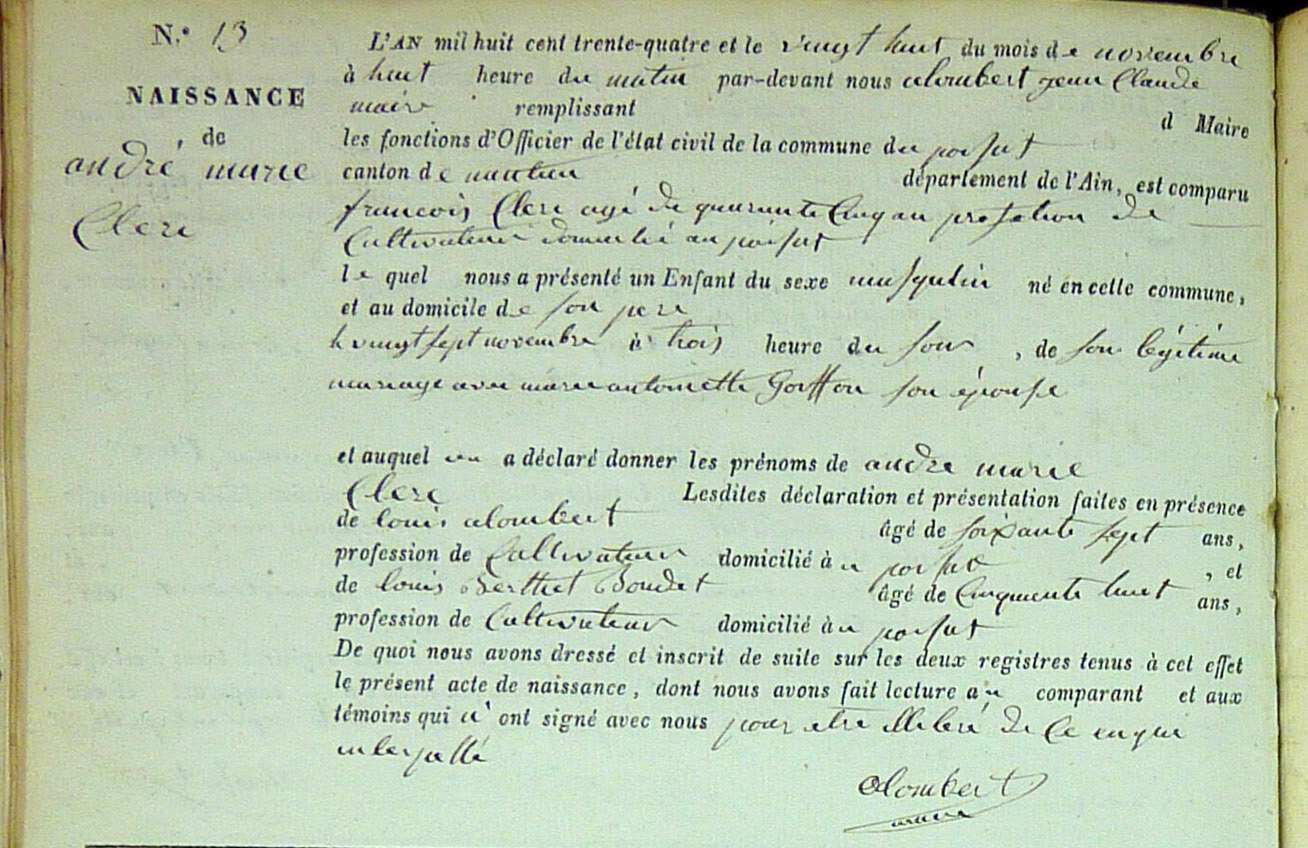 N.º 13
NAISSANCE
de
andré marie
Clerc
L'AN mil huit cent trente-quatre et le vingt huit du mois de novembre
à huit heure du matin par-devant nous alombert jean Claude
maire remplissant d Maire
les fonctions d'Officier de l'état civil de la commune du poisat
canton de nantua département de l'Ain, est comparu
francois Clerc agé de quarante Cinq an profession de
Cultivateur domicilié au poisat
le quel nous a présenté un Enfant du sexe masqulin né en celle commune,
et au domicile de son pere
le vingt sept novembre à trois heure du soir , de son légitime
mariage avec marie antoinette Goiffon son épouse
et auquel on a déclaré donner les prénoms de andre marie
Clerc Lesdites déclaration et présentation faites en présence
de louis alombert âgé de soixante sept ans,
profession de Cultivateur domicilié au poisat , et
de louis Berthet Bondet âgé de Cinquante huit ans,
profession de Cultivateur domicilié au poisat
De quoi nous avons dressé et inscrit de suite sur les deux registres tenus à cet effet
le présent acte de naissance, dont nous avons fait lecture au comparant et aux
témoins qui n'ont signé avec nous pour etre illiteré de Ce enqui
interpellé
alombert
maire